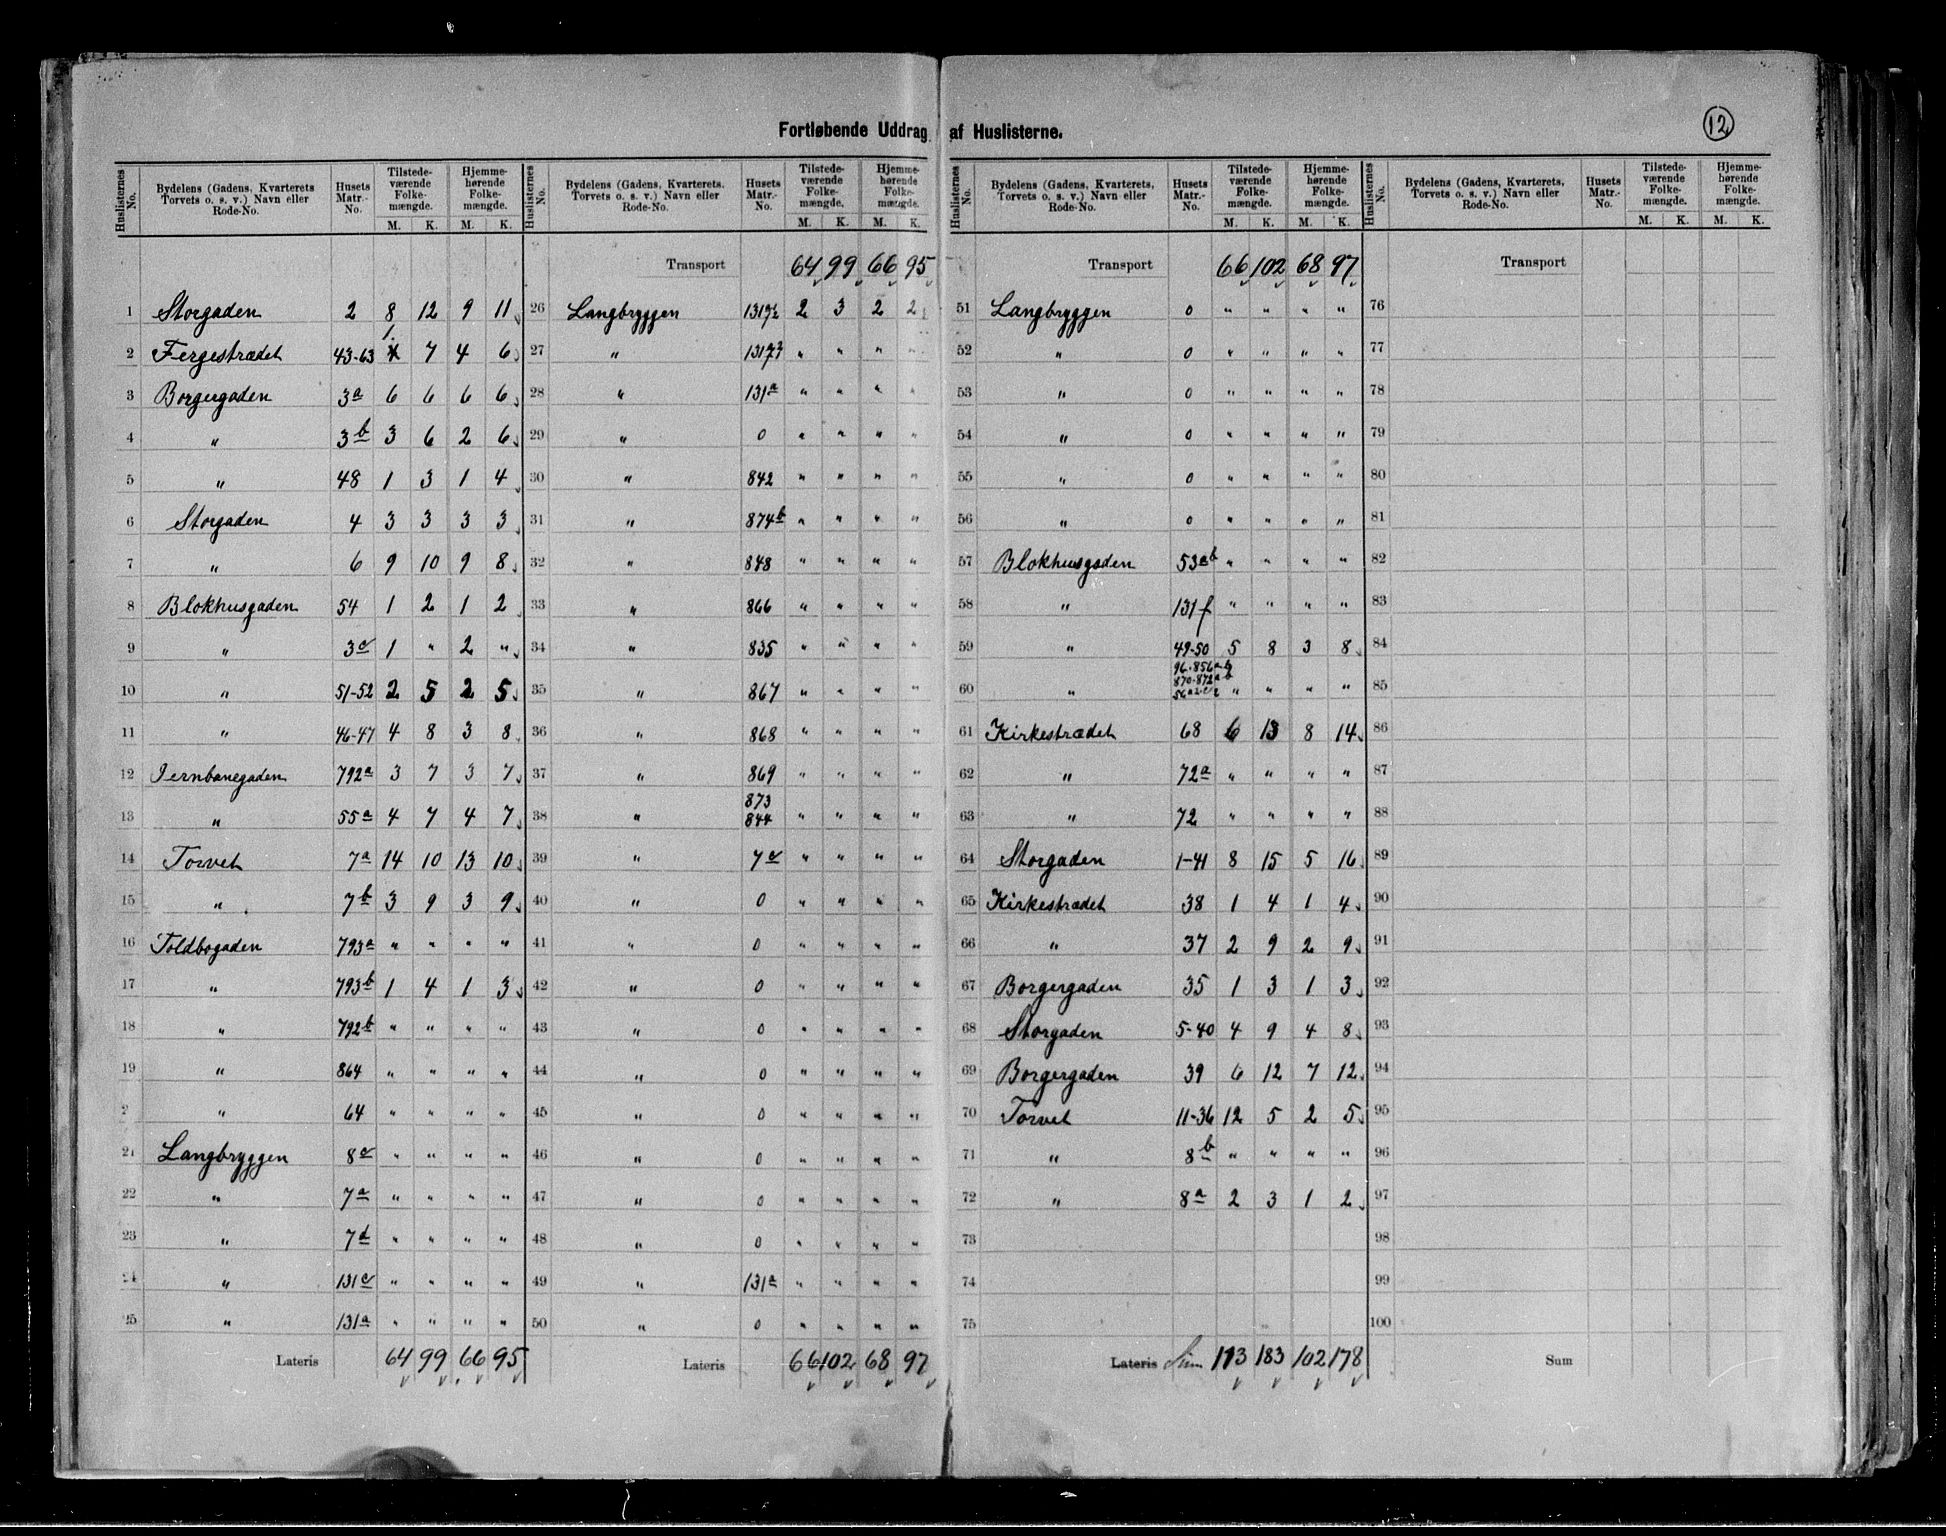 12
Fortløbende Uddrag af Huslisterne.
Huslisternes No. | Bydelens (Gadens, Kvarterets Torvets o. s. v.) Navn eller Rode-No. | Husets Matr.-No. | Tilstedeværende Folkemængde. M. K. | Hjemmehørende Folkemængde. M. K.
1 Storgaden 2 8 12 9 11
2 Fergestrædet 43-63 1 7 4 6
3 Borgergaden 3a 6 6 6 6
4 " 3b 3 6 2 6
5 " 48 1 3 1 4
6 Storgaden 4 3 3 3 3
7 " 6 9 10 9 8
8 Blokhusgaden 54 1 2 1 2
9 " 3c 1 " 2 "
10 " 51-52 2 5 2 5
11 " 46-47 4 8 3 8
12 Jernbanegaden 792a 3 7 3 7
13 " 55a 4 7 4 7
14 Torvet 7a 14 10 13 10
15 " 7b 3 9 3 9
16 Toldbogaden 793a " " " "
17 " 793b 1 4 1 3
18 " 792b " " " "
19 " 864 " " " "
2 " 64 " " " "
21 Langbryggen 8c " " " "
22 " 7a " " " "
23 " 7d " " " "
24 " 131c " " " "
25 " 131a " " " "
Lateris 64 99 66 95
Huslisternes No. | Bydelens (Gadens, Kvarterets, Torvets o. s. v.) Navn eller Rode-No. | Husets Matr.-No. | Tilstedeværende Folkemængde. M. K. | Hjemmehørende Folkemængde. M. K.
Transport 64 99 66 95
26 Langbryggen 2 3 2 2
27 " " " " "
28 " 131a " " " "
29 " 0 " " " "
30 " 842 " " " "
31 " 874b " " " "
32 " 848 " " " "
33 " 866 " " " "
34 " 835 " " " "
35 " 867 " " " "
36 " 868 " " " "
37 " 869 " " " "
38 " 873 844 " " " "
39 " 7c " " " "
40 " 0 " " " "
41 " 0 " " " "
42 " 0 " " " "
43 " 0 " " " "
44 " 0 " " " "
45 " 0 " " " "
46 " 0 " " " "
47 " 0 " " " "
48 " 0 " " " "
49 " 131a " " " "
50 " 0 " " " "
Lateris 66 102 68 97
Huslisternes No. | Bydelens (Gadens, Kvarterets Torvets o. s. v.) Navn eller Rode-No. | Husets Matr.-No. | Tilstedeværende Folkemængde. M. K. | Hjemmehørende Folkemængde. M. K.
Transport 66 102 68 97
51 Langbryggen 0 " " " "
52 " 0 " " " "
53 " 0 " " " "
54 " 0 " " " "
55 " 0 " " " "
56 " 0 " " " "
57 Blokhusgaden 53ab " " " "
58 " 131f " " " "
59 " 49-50 5 8 3 8
60 " 96-856a-b 870-872a-b " " " "
61 Kirkestrædet 68 6 13 8 14
62 " 72a " " " "
63 " 72 " " " "
64 Storgaden 1-41 8 15 5 16
65 Kirkestrædet 38 1 4 1 4
66 " 37 2 9 2 9
67 Borgergaden 35 1 3 1 3
68 Storgaden 5-40 4 9 4 8
69 Borgergaden 39 6 12 7 12
70 Torvet 11-36 12 5 2 5
71 " 8b " " " "
72 " 8a 2 3 1 2
73
74
75
Lateris Sum 113 183 102 178
Huslisternes No. | Bydelens (Gadens, Kvarterets, Torvets o. s. v.) Navn eller Rode-No. | Husets Matr.-No. | Tilstedeværende Folkemængde. M. K. | Hjemmehørende Folkemængde. M. K.
Transport
76
77
78
79
80
81
82
83
84
85
86
87
88
89
90
91
92
93
94
95
96
97
98
99
100
Sum